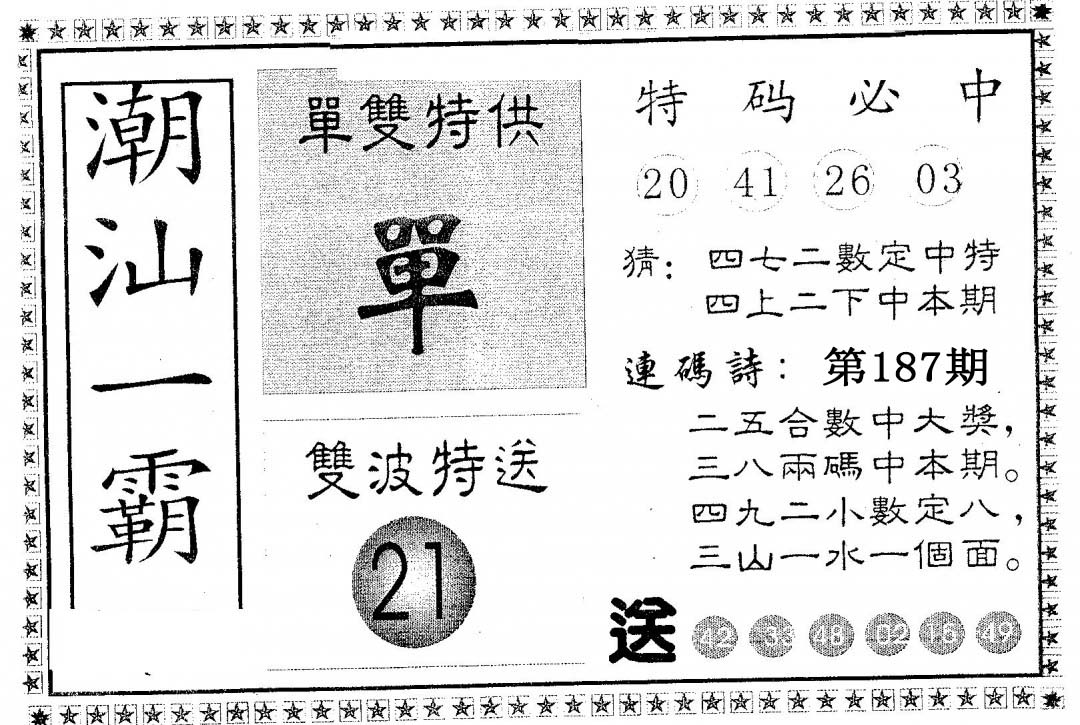 潮汕一霸
單雙特供
單
雙波特送
21
特码必中
20 41 26 03
猜：四七二數定中特
四上二下中本期
連碼詩：第187期
二五合數中大獎，
三八兩碼中本期。
四九二小數定八，
三山一水一個面。
送 42 33 48 02 15 49